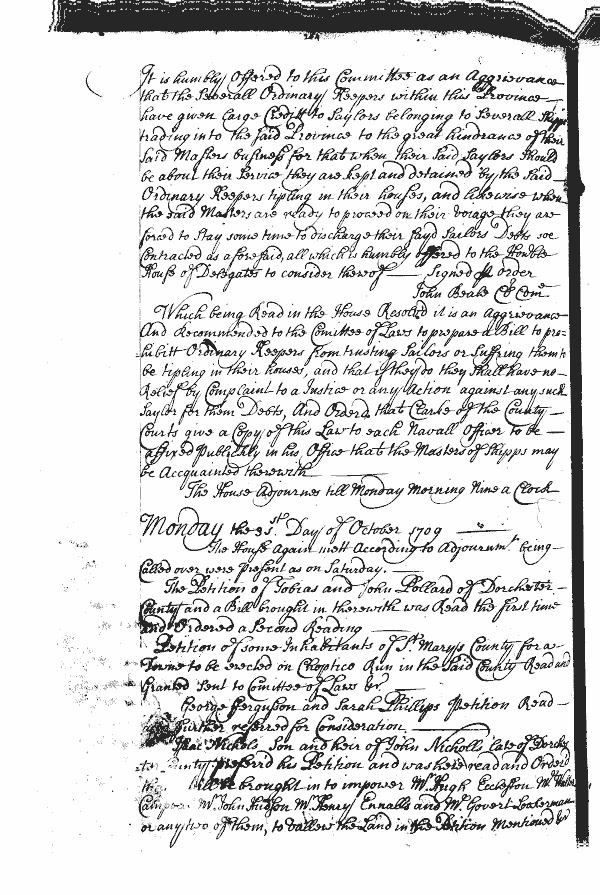 It is humbly Offered to this Committee as an Aggrievance
that the Severall Ordinary Keepers within this Province
have given Large Creditt to Saylors belonging to Severall Shipps
trading into the said Province to the great hindrance of their
said Masters business for that when their Said Saylors Should
be about their Service they are kept and detained by the Said
Ordinary Keepers tipling in their houses, and likewise when
the said Masters are ready to proceed on their voiage they are
forced to Stay some time to discharge their sayd Sailors Debts soe
Contracted as aforesaid, all which is humbly offered to the Honble
House of Delegates to consider thereof Signed p Order
John Beale Cl Com
Which being Read in the House Resolvd it is an Aggrievance
And Recommended to the Comittee of Laws to prepare a Bill to pro=
hibitt Ordinary Keepers from trusting Sailors or Suffring them to
be tipling in their houses, and that if they do they Shall have no
Relief by Complaint to a Justice or any Action against any such
Saylor for them Debts, And Orderd that Clarke of the County
Courts give a Copy of this Law to each Navall Officer to be
affixed Publickly in his Office that the Masters of Shipps may
be Accquainted therewith
The House Adjournes till Monday Morning Nine a Clock
Monday the 31st. Day of October 1709
The House Again mett According to Adjournmt. being
Called over were present as on Saturday.
The Petition of Tobias and John Pollard of Dorchester
County and a Bill brought in therewith was Read the first time
and Ordered a Second Reading
Petition of some Inhabitants of St. Marys County for a
Towne to be erected on Choptico Run in the Said County Read and
Granted Sent to Comittee of Laws &c
George Ferguson and Sarah Phillips Petition Read
further referred for Consideration
Isaac Nichols Son and heir of John Nicholls late of Dorchr
County preferrd his Petition and was here read and Orderd
brought in to impower Mr. Hugh Eccleston Mr. Walter
Campbell Mr. John Hudson Mr. Henry Ennalls and Mr. Govert Lookerman
or any two of them, to vallew the Land in the Petition Mentioned &c